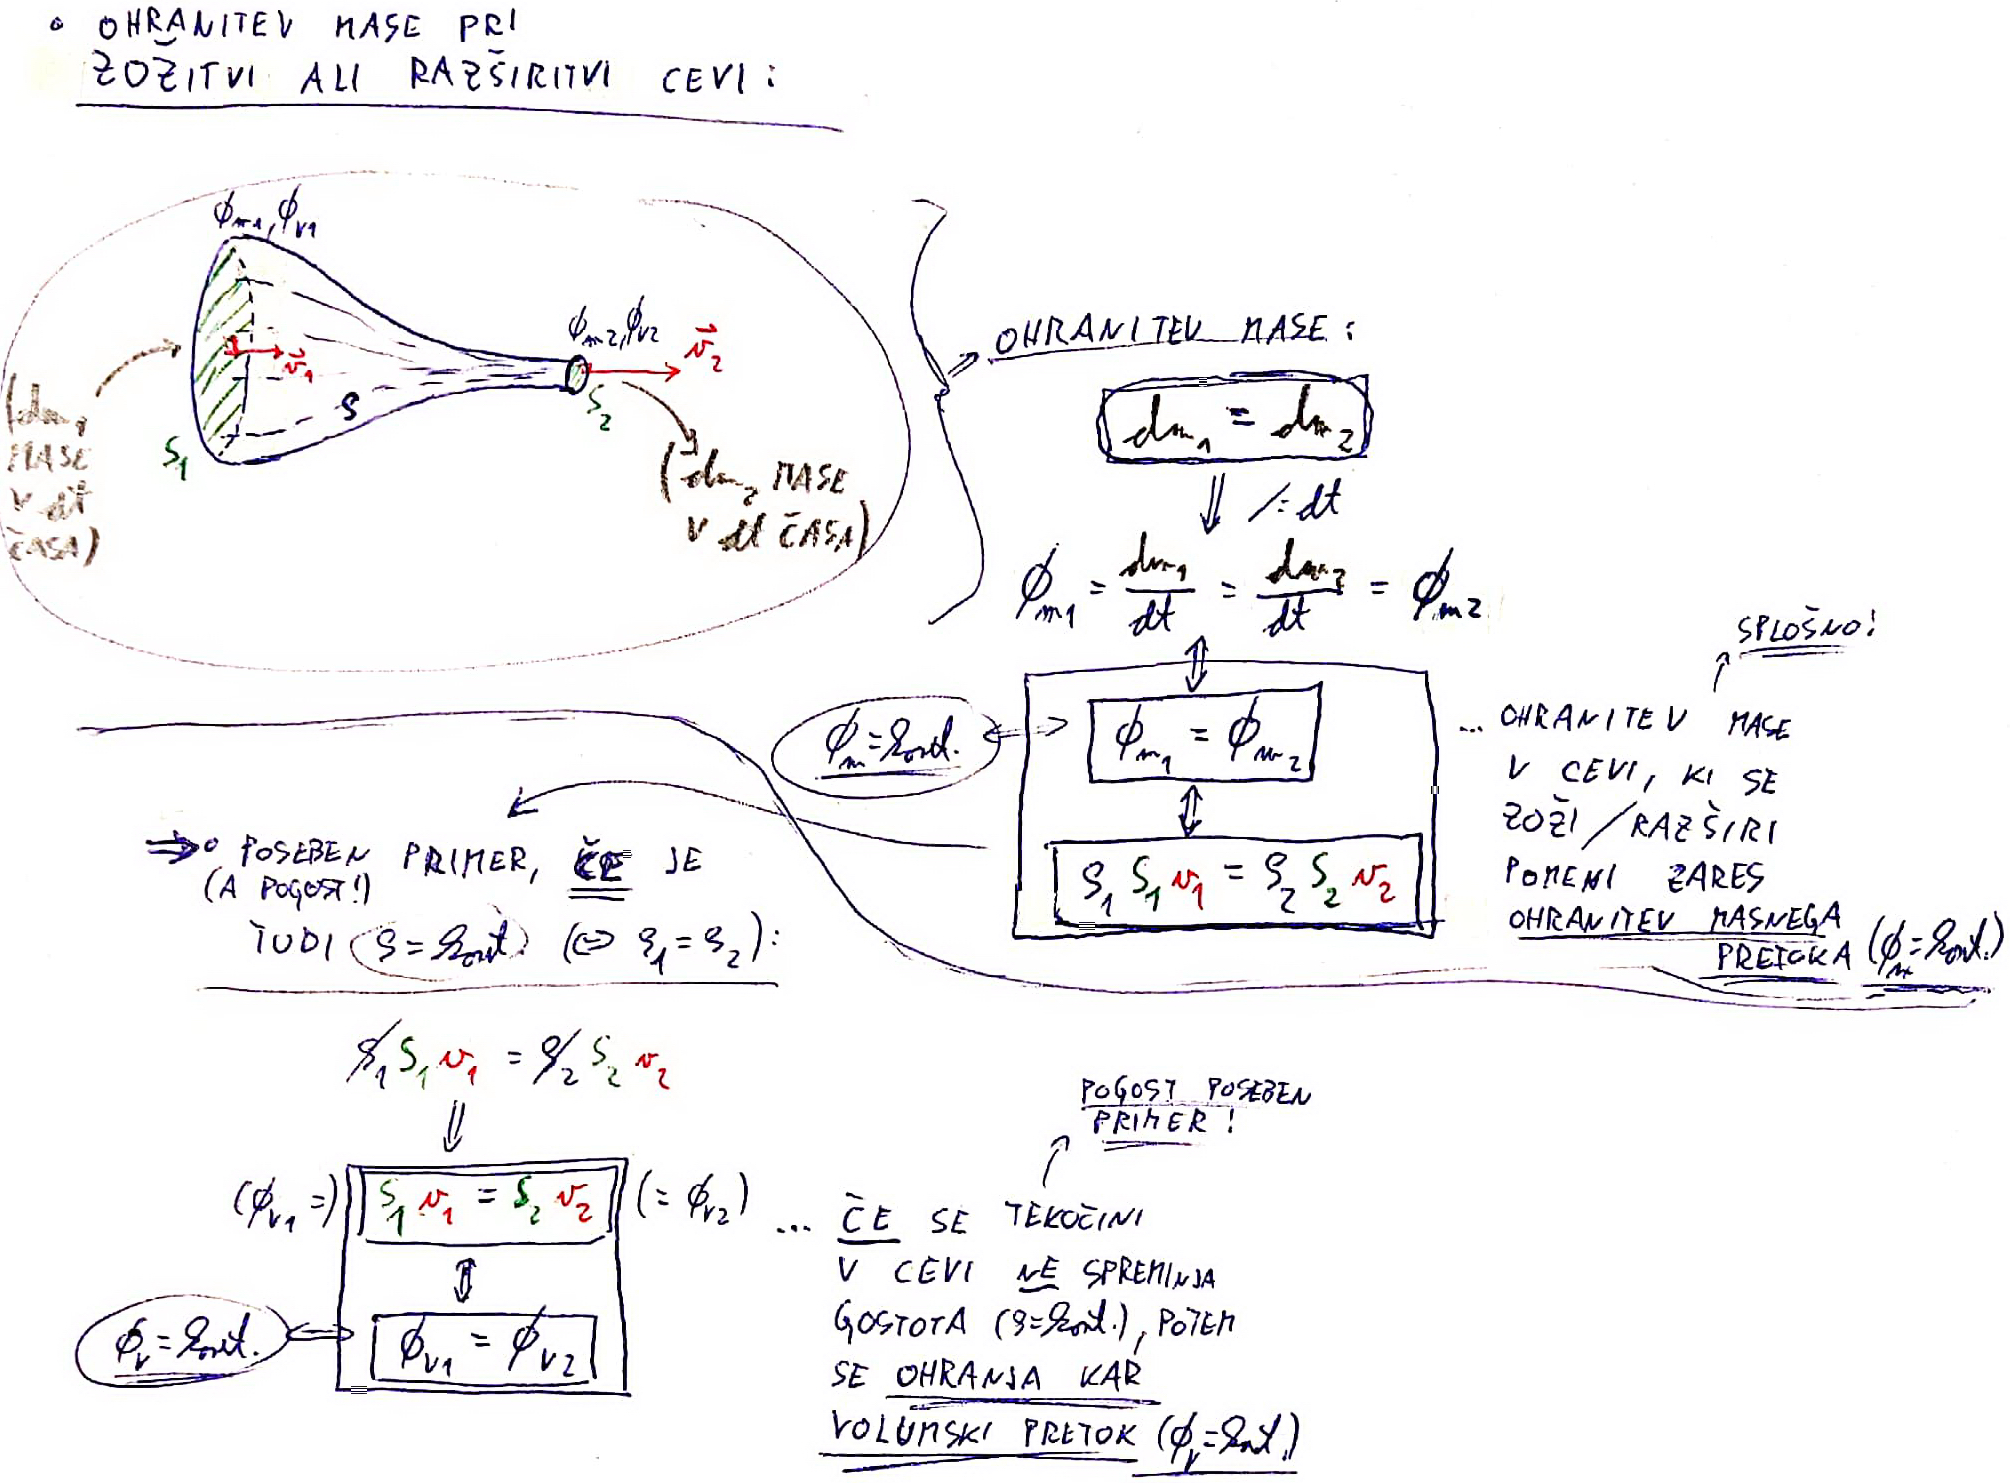 • OHRANITEV MASE PRI
ZOŽITVI ALI RAZŠIRITVI CEVI:
ϕm1, ϕV1
ϕm2, ϕV2
v⃗1
v⃗2
ρ
S1
S2
(dm1
MASE
V dt
ČASA)
(dm2 MASE
V dt ČASA)
OHRANITEV MASE:
dm1 = dm2
/:dt
ϕm1 = dm1/dt = dm2/dt = ϕm2
SPLOŠNO!
ϕm = konst. ⇔ ϕm1 = ϕm2
ρ1 S1 v1 = ρ2 S2 v2
... OHRANITEV MASE
V CEVI, KI SE
ZOŽI/RAZŠIRI
POMENI ZARES
OHRANITEV MASNEGA
PRETOKA (ϕm = konst.)
⇒ • POSEBEN PRIMER, ČE JE
(A POGOST!)
TUDI ρ = konst. (⇔ ρ1 = ρ2):
ρ1 S1 v1 = ρ2 S2 v2
(ϕV1 =) S1 v1 = S2 v2 (= ϕV2)
ϕV = konst. ⇔ ϕV1 = ϕV2
POGOST POSEBEN
PRIMER!
... ČE SE TEKOČINI
V CEVI NE SPREMINJA
GOSTOTA (ρ = konst.), POTEM
SE OHRANJA KAR
VOLUMSKI PRETOK (ϕV = konst.)